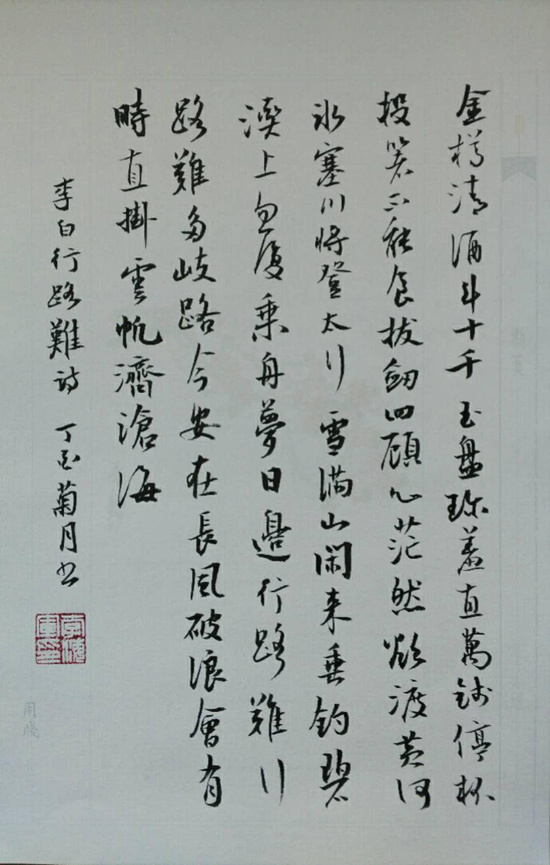 金樽清酒斗十千玉盤珍羞直萬錢停杯
投箸不能食拔劍四顧心茫然欲渡黃河
冰塞川將登太行雪滿山閑來垂釣碧
溪上忽復乘舟夢日邊行路難行
路難多岐路今安在長風破浪會有
時直掛雲帆濟滄海
李白行路難詩 丁酉菊月書
用箋